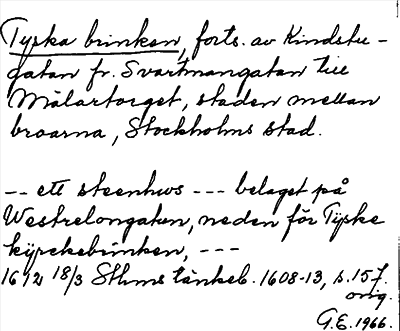 Tyska brinken, forts. av Kindstu-
gatan fr. Svartmangatan till
Mälartorget, staden mellan
broarna, Stockholms stad.
-- ett steenhws --- belaget på
Westrelongaten, neden för Tyske
kyrckebrinken, ---
1612 18/3 Sthms tänkeb. 1608-13, s. 157.
orig.
G.E. 1966.